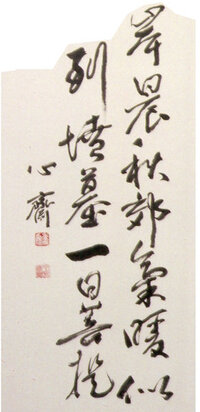 晨秋郊氣暖似
列墳墓一日菩提
心齋